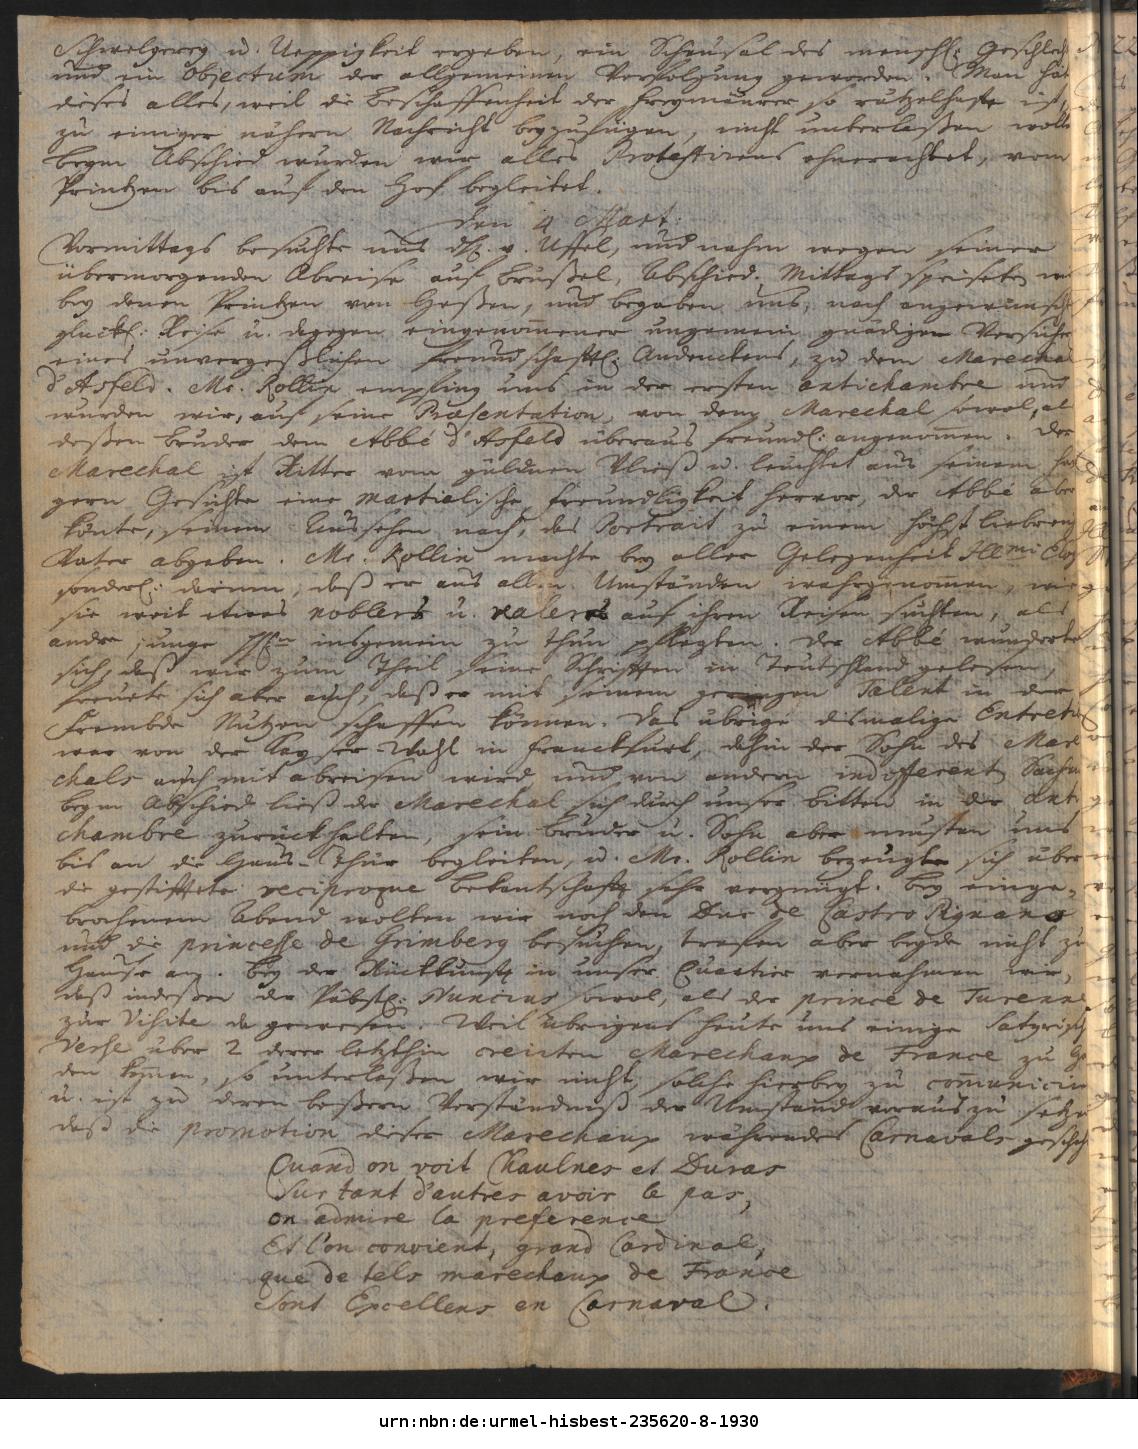 Schwelgerey u. Ueppigkeit ergeben, ein Scheusal des menschl: Geschlech
und ein Objectum der allgemeinen Verfolgung geworden. Man hat
dieses alles, weil die Beschaffenheit der Freymäurer so rätzelhafte ist,
zu einiger nähern Nachricht beyzufügen, nicht unterlaßen wolle
beym Abschied wurden wir alles Protestirens ohnerachtet, vom
Printzen bis auf den Hof begleitet.
den 4 Mart:
Vormittags besuchte uns H. v. Uffel, und nahm wegen seiner
übermorgenden Abreise auf Brüßel, Abschied. Mittags speiseten
bey denen Printzen von Heßen, und begaben uns, nach angewünsch
glückl: Reise u. dagegen eingenommener ungemein gnädigen Versiche
eines unvergeßlichen freundschafftl: Andenckens, zu dem Marecha
d'Asfeld. Mr. Rollin empfing uns in der ersten antichambre und
wurden wir, auf seine Præsentation, von dem Marechal sowol, al
deßen Bruder dem Abbé d'Asfeld überaus freundl: angenommen. Der
Marechal ist Ritter vom güldnen Vließ u. leuchtet aus seinem ha
gern Gesichte eine martialische Freundligkeit hervor, der Abbé aber
könte, seinem Aussehen nach, das Portrait zu einem höchst liebreu
Vater abgeben. Mr. Rollin machte bey aller Gelegenheit Ill mi
sonderl: darinn, daß er aus allen Umständen wahrgenommen, wie
sie weit etwas noblers u. auf ihren Reisen suchten, als
andre junge insgemein zu thun pflegten. Der Abbé wunderte
sich, daß wir zum Theil seine Schrifften in Teutschland gelesen,
freuete sich aber auch, daß er mit seinem geringen Talent in der
Frembde Nutzen schaffen können. Das übrige dismalige Entreti
war von der Kayser Wahl in Franckfurt, dahin der Sohn des Mare
chals auch mit abreisen wird und von andern indifferenten Sachen
beym Abschied ließ der Marechal sich durch unser Bitten in der Ant
chambre zurückhalten, sein Bruder u. Sohn aber musten uns
bis an die Haus-Thür begleiten, u. Mr. Rollin bezeugte sich über
die gestifftete reciproque Bekantschafft sehr vergnügt. Bey einge-
brochenem Abend wolten wir noch den Duc de Castro Pignano
und die princesse de Grimberg besuchen, trafen aber beyde nicht zu
Hause an. Bey der Rückkunfft in unser Quartier vernahmen wir,
daß indeßen der Päbstl: Nuncius sowol, als der prince de Turenne
zur Visite da gewesen. Weil übrigens heute uns einige Satyrisch
Verse über 2 derer letzthin creirten Marechaux de France zu Ge
den kommen, so unterlaßen wir nicht, solche hierbey zu communicir
u. ist zu deren beßern Verständniß der Umstand voraus zu setze
daß die promotion dieser Marechaux währendes Carnavals gescheh
Quand on voit Chaulnes et Duras
Sur tant d'autres avoir le pas,
on admire la preference
Et l'on convient, grand Cardinal,
que de tels marechaux de France
Sont Excellens en Carnaval.
urn:nbn:de:urmel-hisbest-235620-8-1930